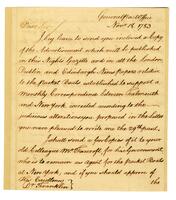 General Post Office
Novr. 18. 1783
Dear Sir
I beg leave to send you inclosed a Copy
of the Advertisement which will be published
in this Nights Gazette and in all the London
Dublin and Edinburgh News papers relative
to the Packet Boats established to support a
Monthly Correspondence between Falmouth
and New York
alterations you proposed in the letter
you pleased to write me the 29th past.
I shall send a few Copies of it to your
old Colleague Mr. Foxcroft, for his Government
who is to remain as Agent for the Packet Boats
at New York, and if you should approve of
His Excellency the
Dr. Franklin